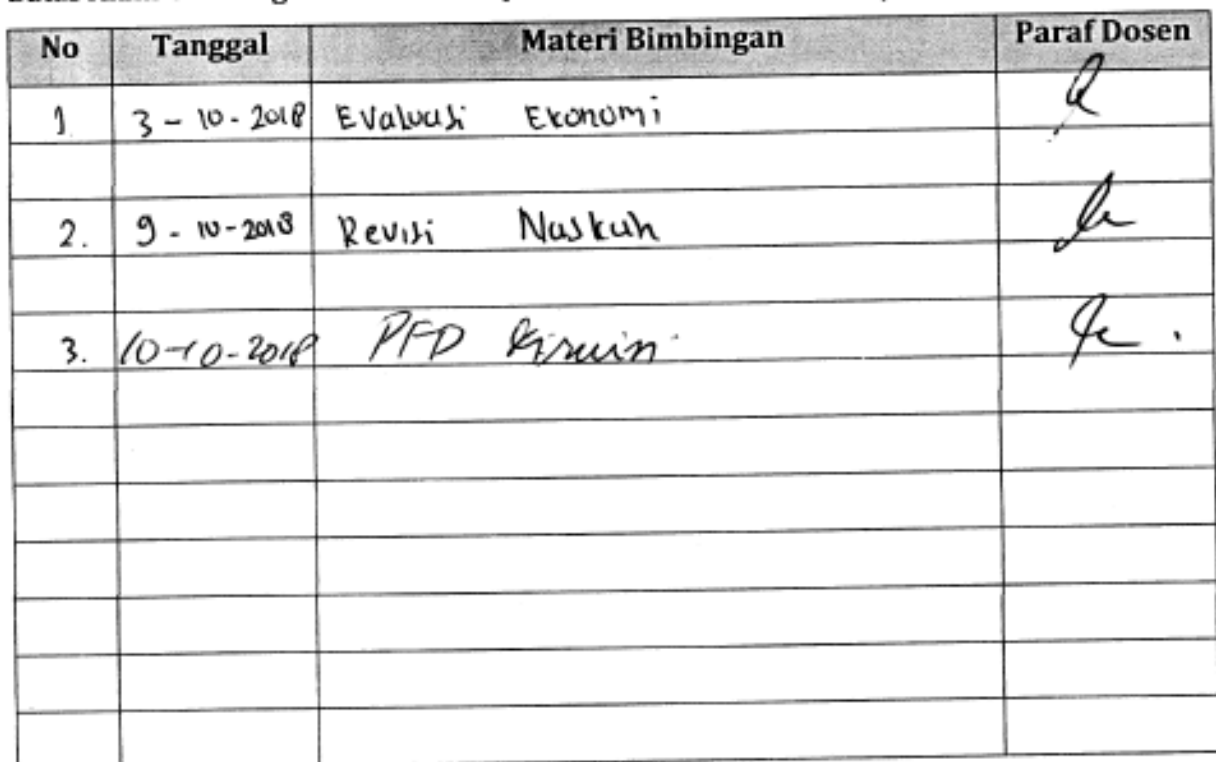 No Tanggal Materi Bimbingan Paraf Dosen
1. 3 - 10 - 2018 Evaluasi Ekonomi
2. 9 - 10 - 2018 Revisi Naskah
3. 10-10-2018 PFD